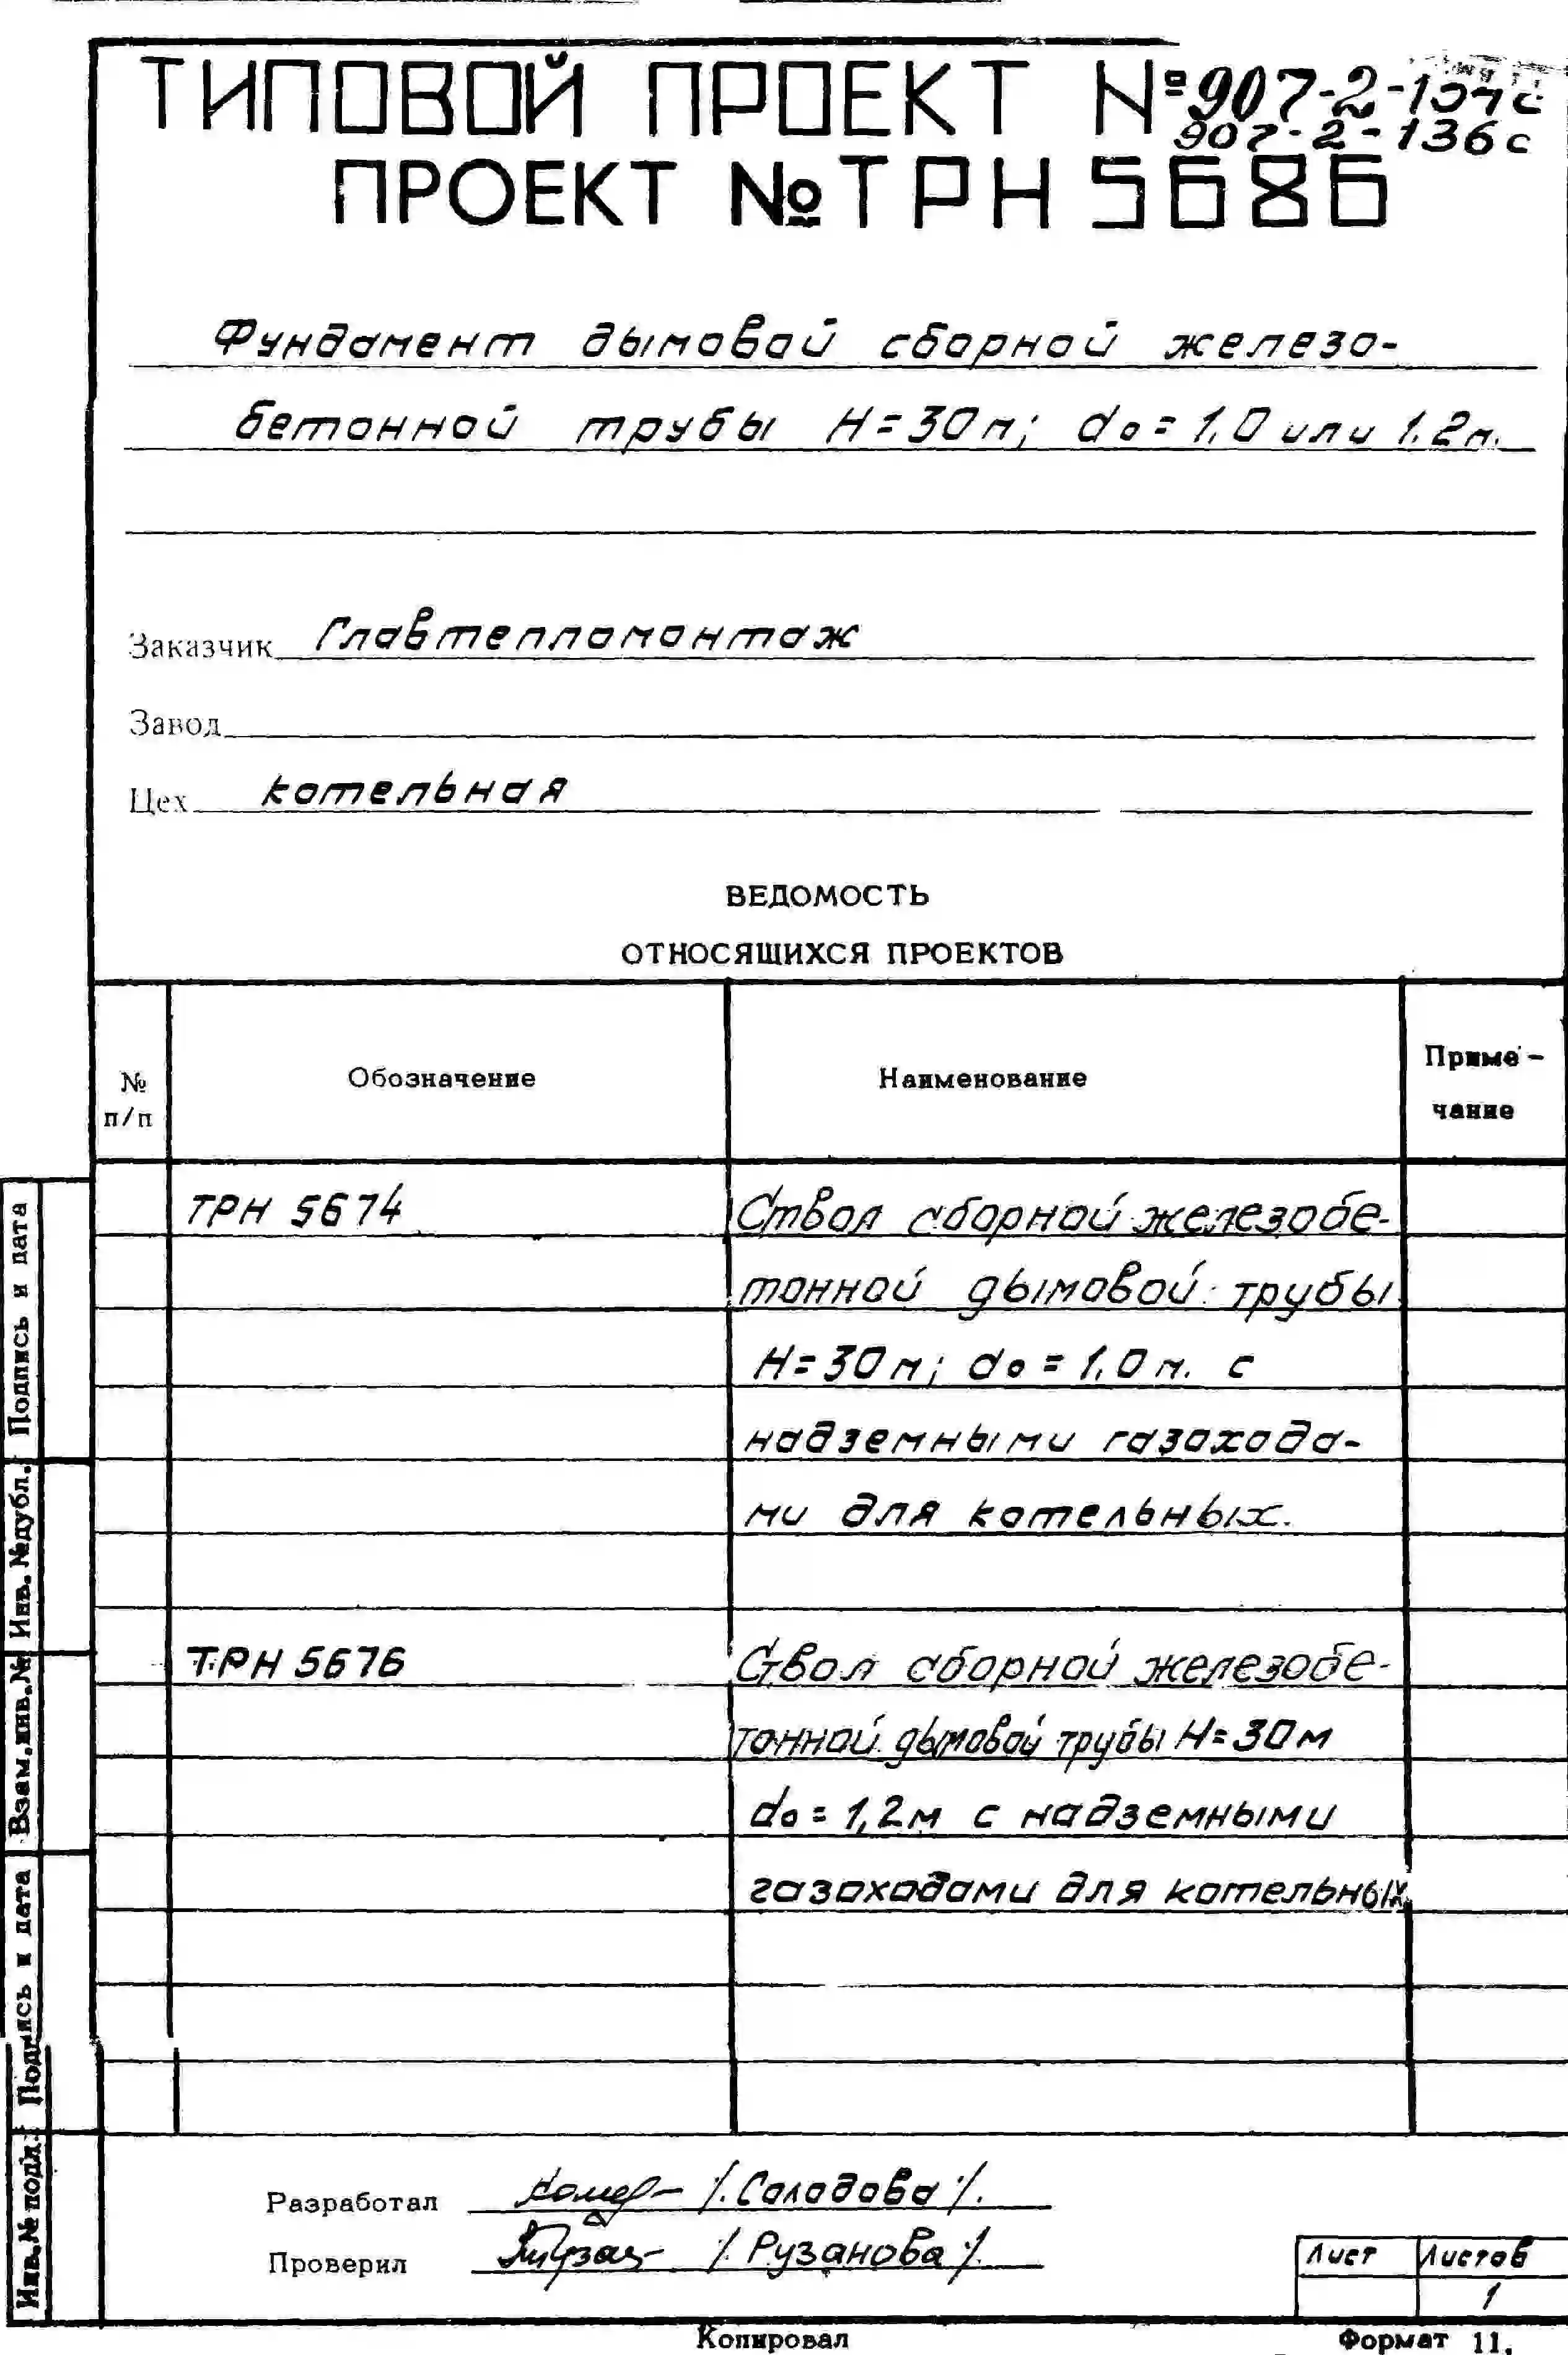 ТИПОВОЙ ПРОЕКТ № 907-2-
907-2-136с
ПРОЕКТ № ТРН 5686
Фундамент дымовой сборной железо-
бетонной трубы H=30м; do=1,0 или 1.2м.
Заказчик Главтепломонтаж
Завод
Цех котельная
ВЕДОМОСТЬ
ОТНОСЯЩИХСЯ ПРОЕКТОВ
№ п/п
Обозначение
Наименование
Приме-
чание
ТРН 5674
Ствол сборной железобе-
тонной дымовой трубы
H=30м; do=1,0м. с
надземными газохода-
ми для котельных.
ТРН 5676
Ствол сборной железобе-
тонной дымовой трубы H=30м
do=1,2м с надземными
газоходами для котельных
Подпись и дата
Инв. №дубл.
Взам.инв.№
Подпись и дата
Инв.№ подл.
Разработал /Солодова/.
Проверил /Рузанова/.
Лист
Листов
1
Копировал
Формат 11.